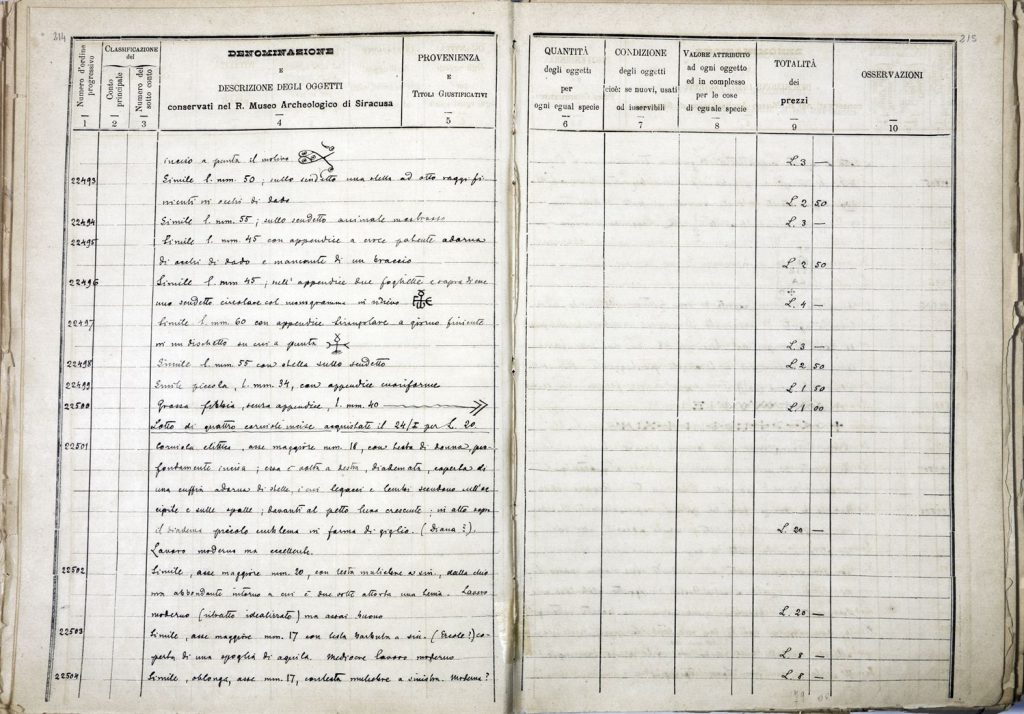 214
215
Numero d'ordine progressivo
CLASSIFICAZIONE del
Conto principale
Numero del sotto conto
DENOMINAZIONE
E
DESCRIZIONE DEGLI OGGETTI
conservati nel R. Museo Archeologico di Siracusa
PROVENIENZA
E
TITOLI GIUSTIFICATIVI
QUANTITÀ
degli oggetti
per
ogni egual specie
CONDIZIONE
degli oggetti
cioè: se nuovi, usati
od inservibili
VALORE ATTRIBUITO
ad ogni oggetto
ed in complesso
per le cose
di eguale specie
TOTALITÀ
dei
prezzi
OSSERVAZIONI
1 2 3 4 5 6 7 8 9 10
inciso a punta il L. 3 —
22493 Simile l. mm. 50; sullo scudetto una stella ad otto raggi fi-
nienti in occhi di dado L. 2 50
22494 Simile l. mm. 55; sullo scudetto animale L. 3 —
22495 Simile l. mm. 45 con appendice a croce patente adorna
di occhi di dado e mancante di un braccio L. 2 50
22496 Simile l. mm 45; nell'appendice due fogliette e sopra di esse
uno scudetto circolare col monogramma in L. 4 —
22497 Simile l. mm. 60 con appendice a giorno finiente
in un dischetto su cui a punta L. 3 —
22498 Simile l. mm. 55 con stella sullo scudetto L. 2 50
22499 Simile piccola, l. mm. 34, con appendice cuoriforme L. 1 50
22500 Grossa fibbia, senza appendice, l. mm. 40 L. 1 00
Lotto di quattro corniole incise acquistate il 24/X per L. 20
22501 Corniola ellittica, asse maggiore mm. 18, con testa di donna pro-
fondamente incisa; essa è volta a destra, diademata, coperta di
una cuffia adorna di stelle, i cui legacci e lembi scendono sull'oc-
cipite e sulle spalle; davanti al petto luna crescente; in alto sopra
il diadema piccolo emblema in forma di giglio. (Diana?). L. 20 —
Lavoro moderno ma eccellente.
22502 Simile, asse maggiore mm. 20, con testa muliebre a sin., dalla chio-
ma abbondante intorno a cui è due volte attorta una tenia. Lavoro
moderno (ritratto idealizzato) ma assai buono L. 20 —
22503 Simile, asse maggiore mm. 17 con testa barbuta a sin. (Ercole?) co-
perta di una spoglia di aquila. Mediocre lavoro moderno L. 8 —
22504 Simile, oblonga, asse mm. 17, con testa muliebre a sinistra. Moderna? L. 8 —